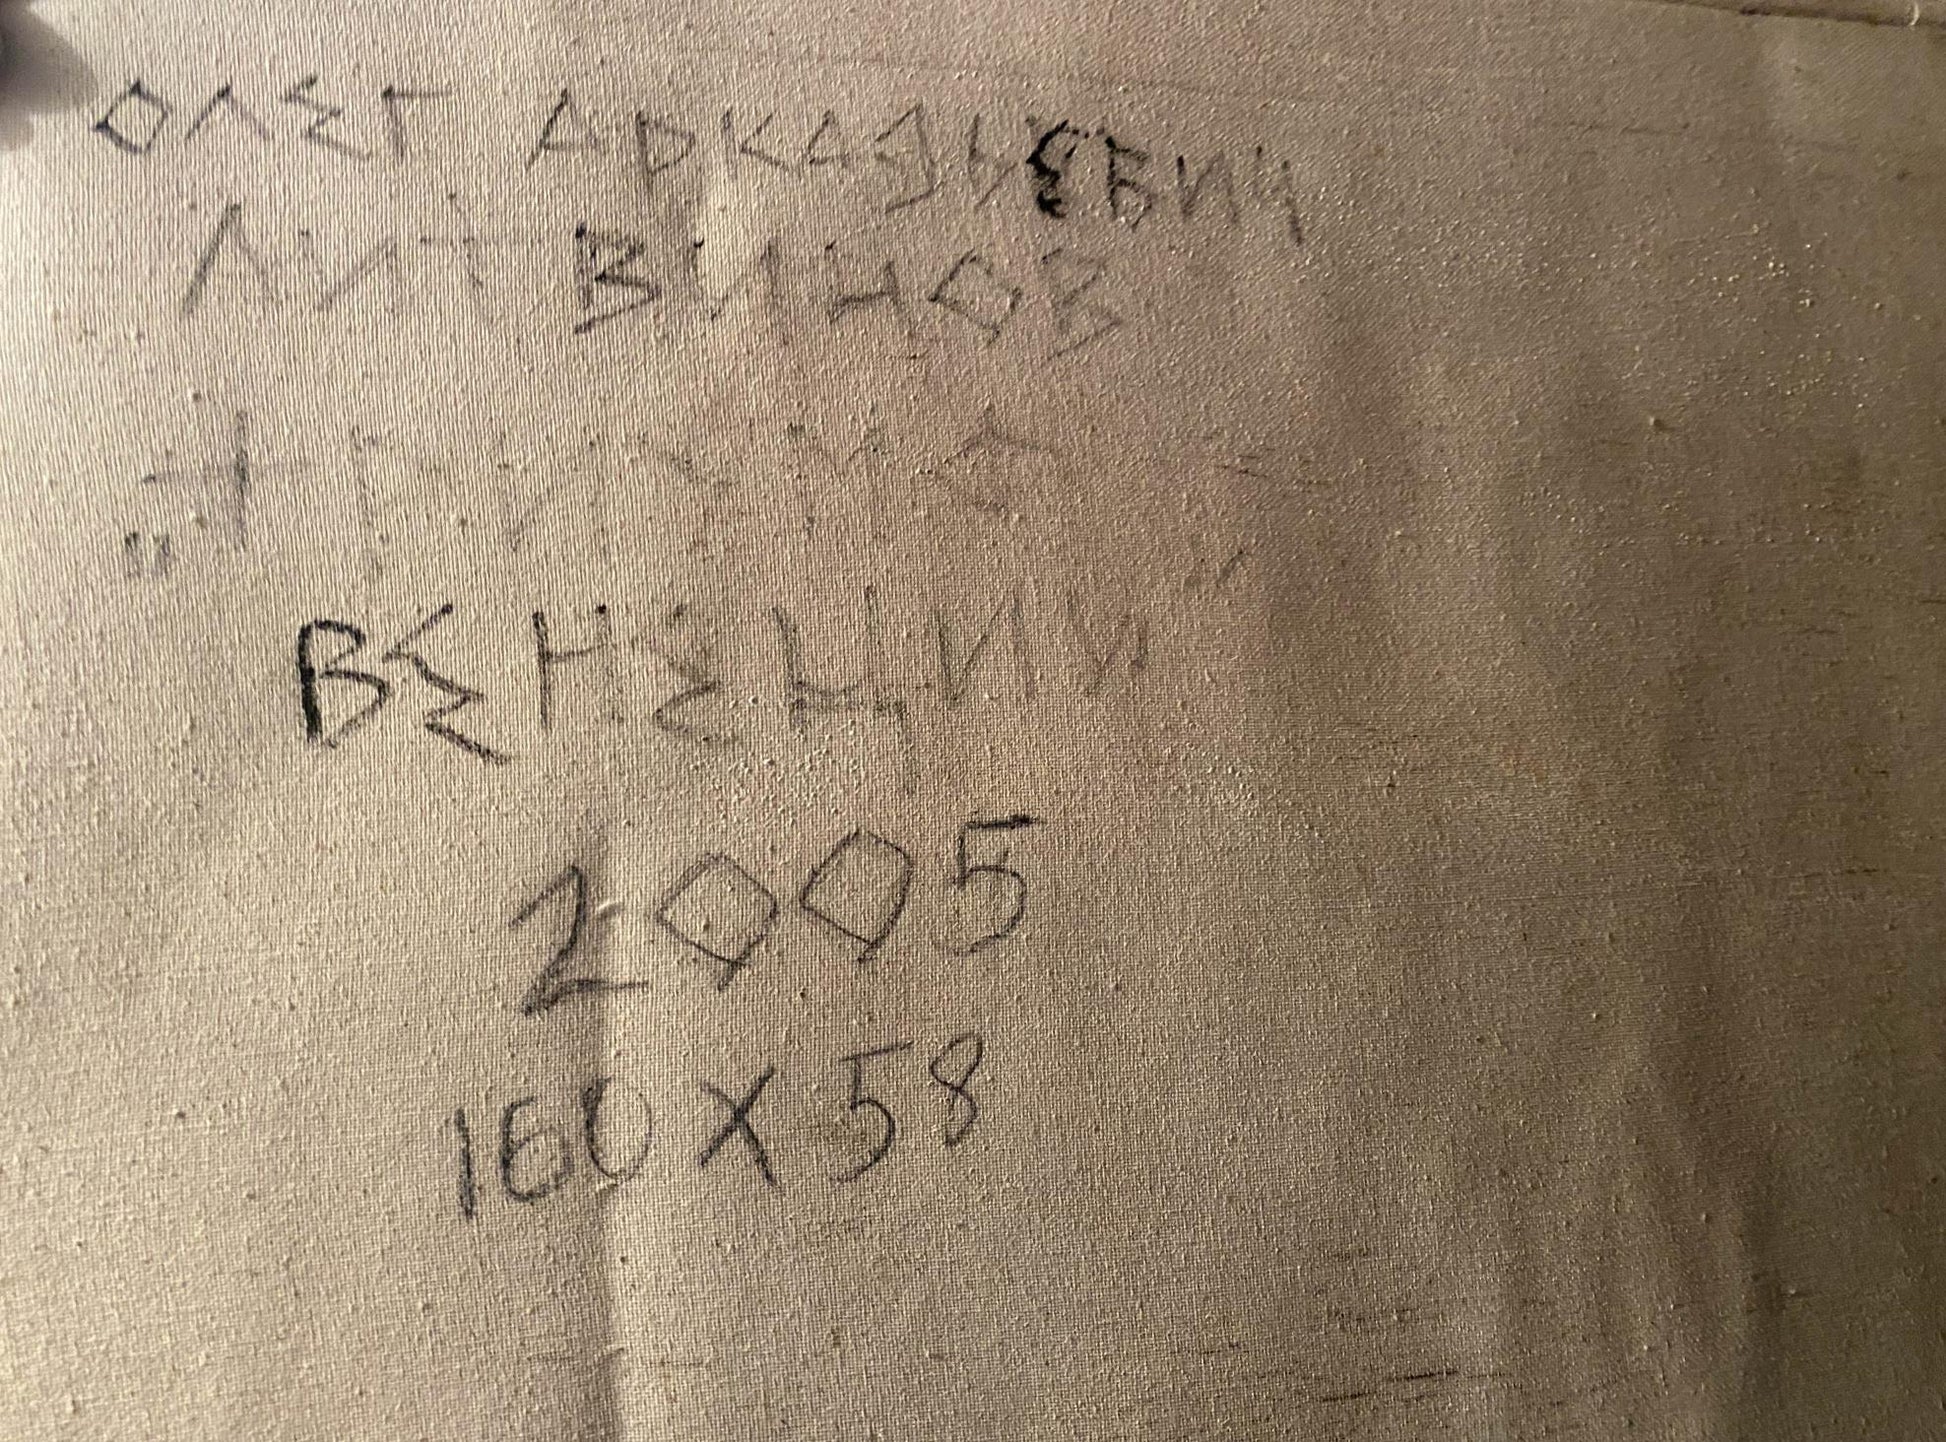 ОЛЕГ АРКАДЬЕВИЧ
ЛИТВИНОВ
ВЕНЕЦИИ"
2005
160 х 58